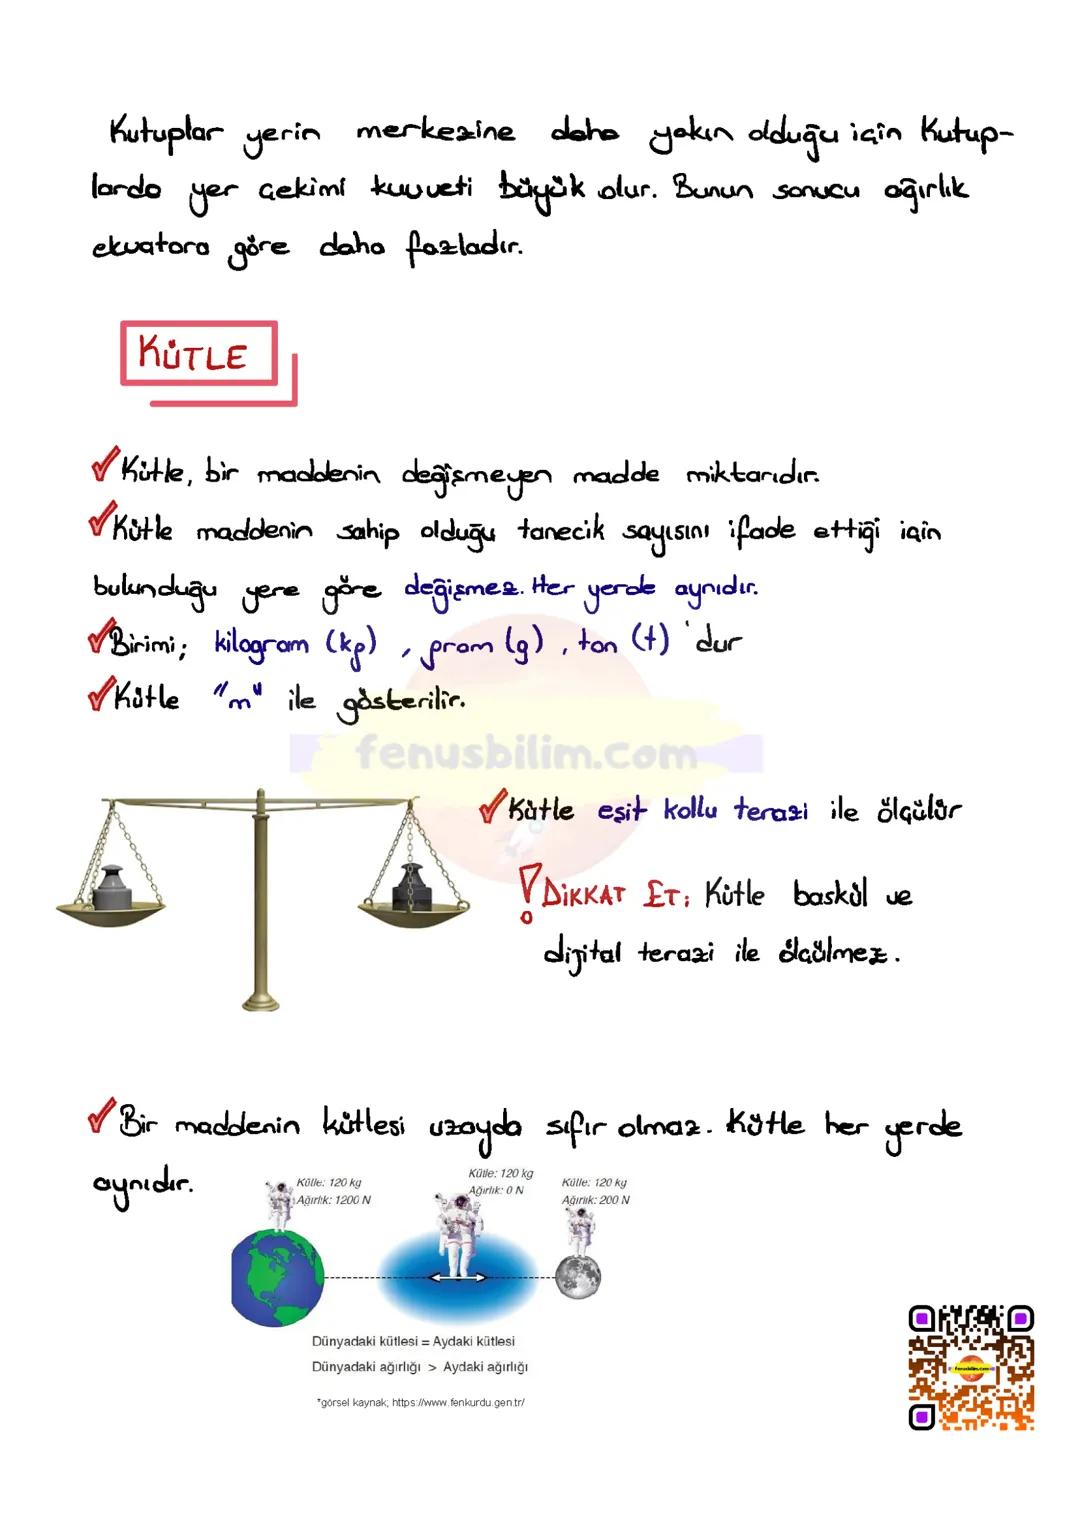 Kutuplar yerin merkezine daha yakın olduğu için Kutup-
larda yer çekimi kuvveti büyük olur. Bunun sonucu ağırlık
ekvatora göre daha fazladır.
KÜTLE
Kütle, bir maddenin değişmeyen madde miktarıdır.
Kütle maddenin sahip olduğu tanecik sayısını ifade ettiği için
bulunduğu yere göre değişmez. Her yerde aynıdır.
Birimi; kilogram (kg) , gram (g) , ton (t) 'dur
Kütle "m" ile gösterilir.
fenusbilim.com
Kütle eşit kollu terazi ile ölçülür
! DİKKAT ET: Kütle baskül ve
dijital terazi ile ölçülmez.
Bir maddenin kütlesi uzayda sıfır olmaz. Kütle her yerde
aynıdır.
Kütle: 120 kg
Ağırlık: 1200 N
Kütle: 120 kg
Ağırlık: 0 N
Kütle: 120 kg
Ağırlık: 200 N
Dünyadaki kütlesi = Aydaki kütlesi
Dünyadaki ağırlığı > Aydaki ağırlığı
*görsel kaynak; https://www.fenkurdu.gen.tr/
fenusbilim.com